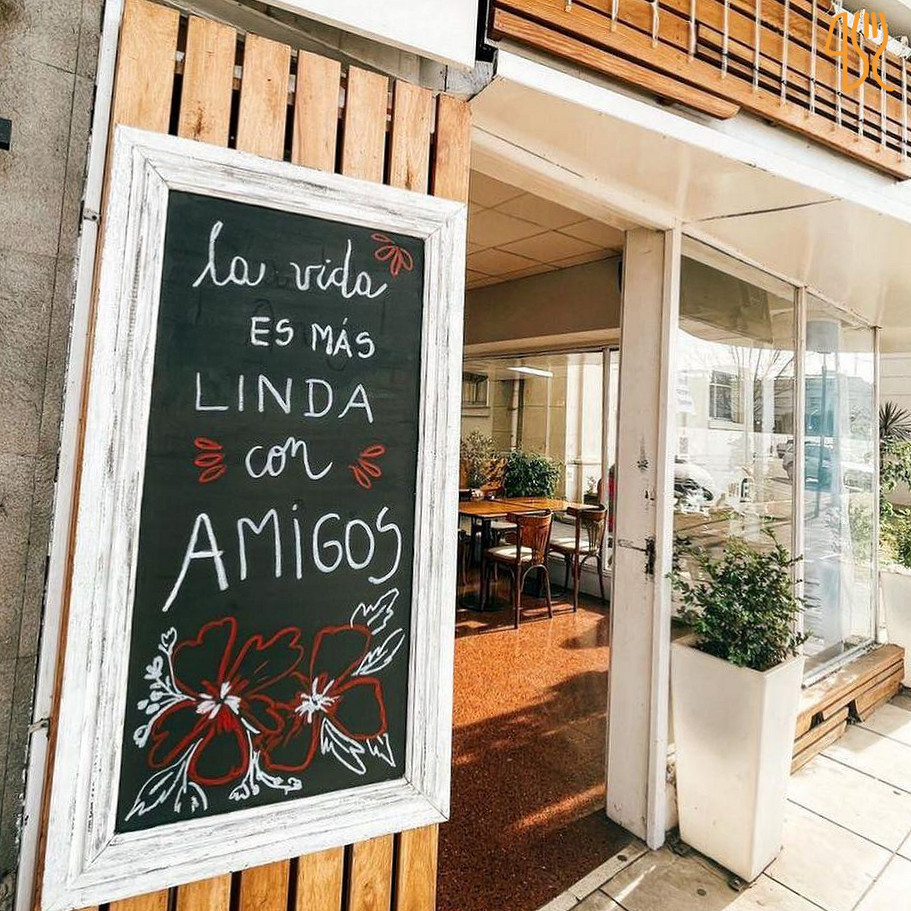 la vida
ES MÁS
LINDA
con
AMiGOS